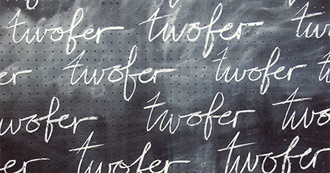 twofer twofer twofer
twofer twofer twofer
twofer twofer twofer
twofer twofer twofer